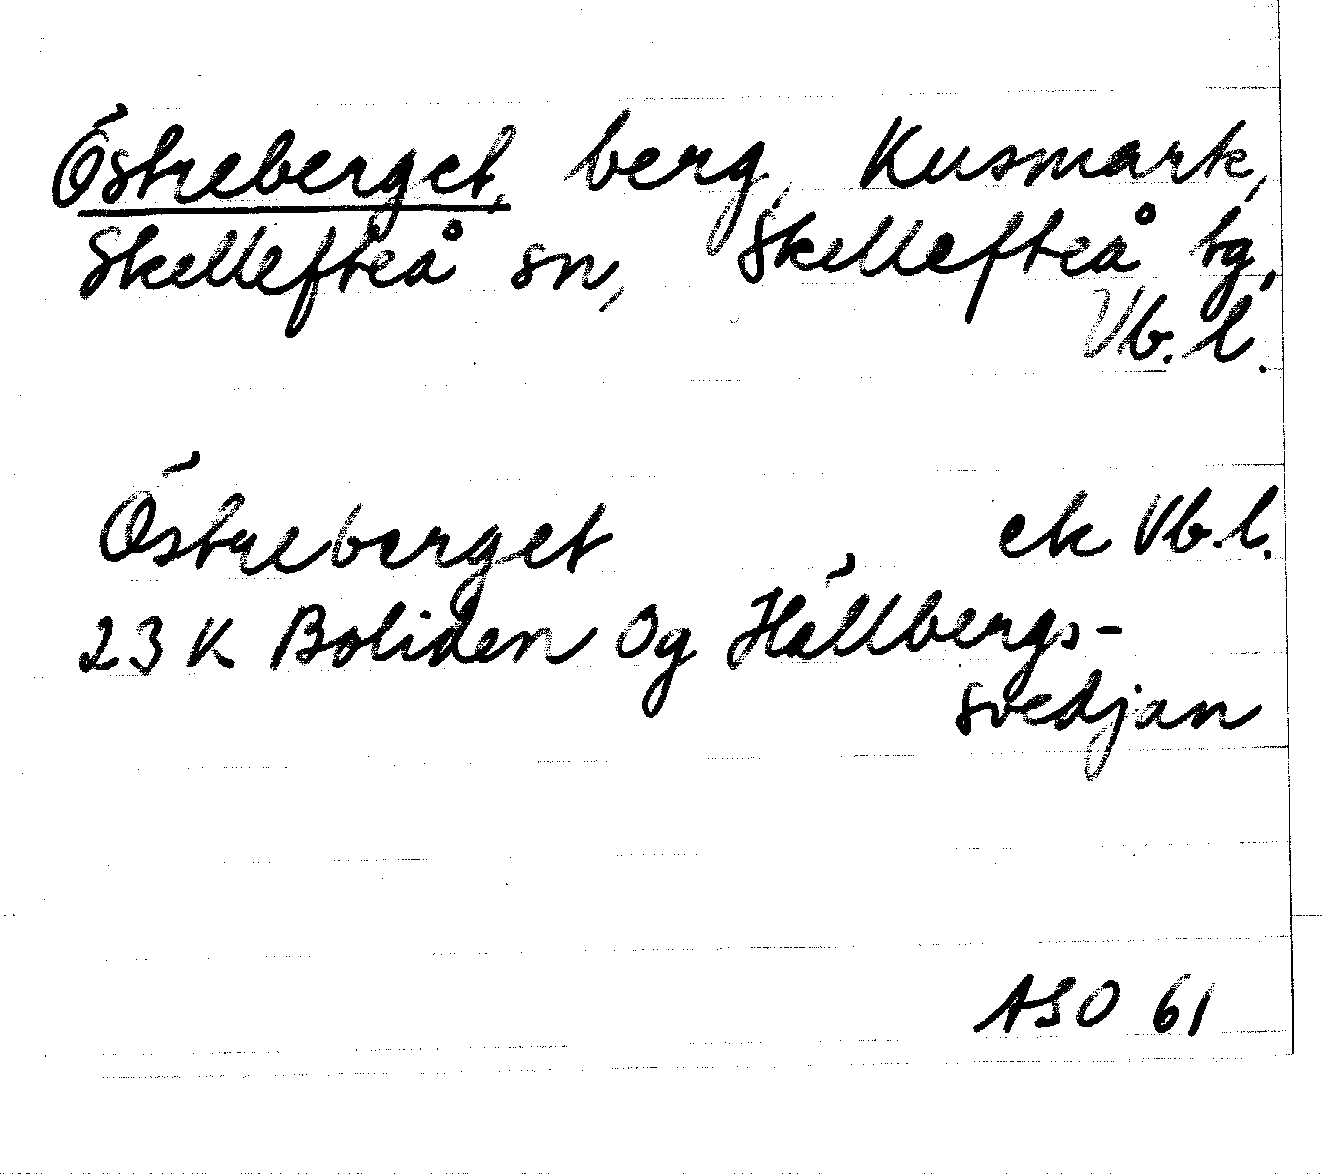 Östreberget, berg, Kusmark,
Skellefteå sn, Skellefteå tg,
Vb. l.
Östreberget ek Vb. l.
23 K Boliden 0g Hällbergs-
svedjan
ASO 61